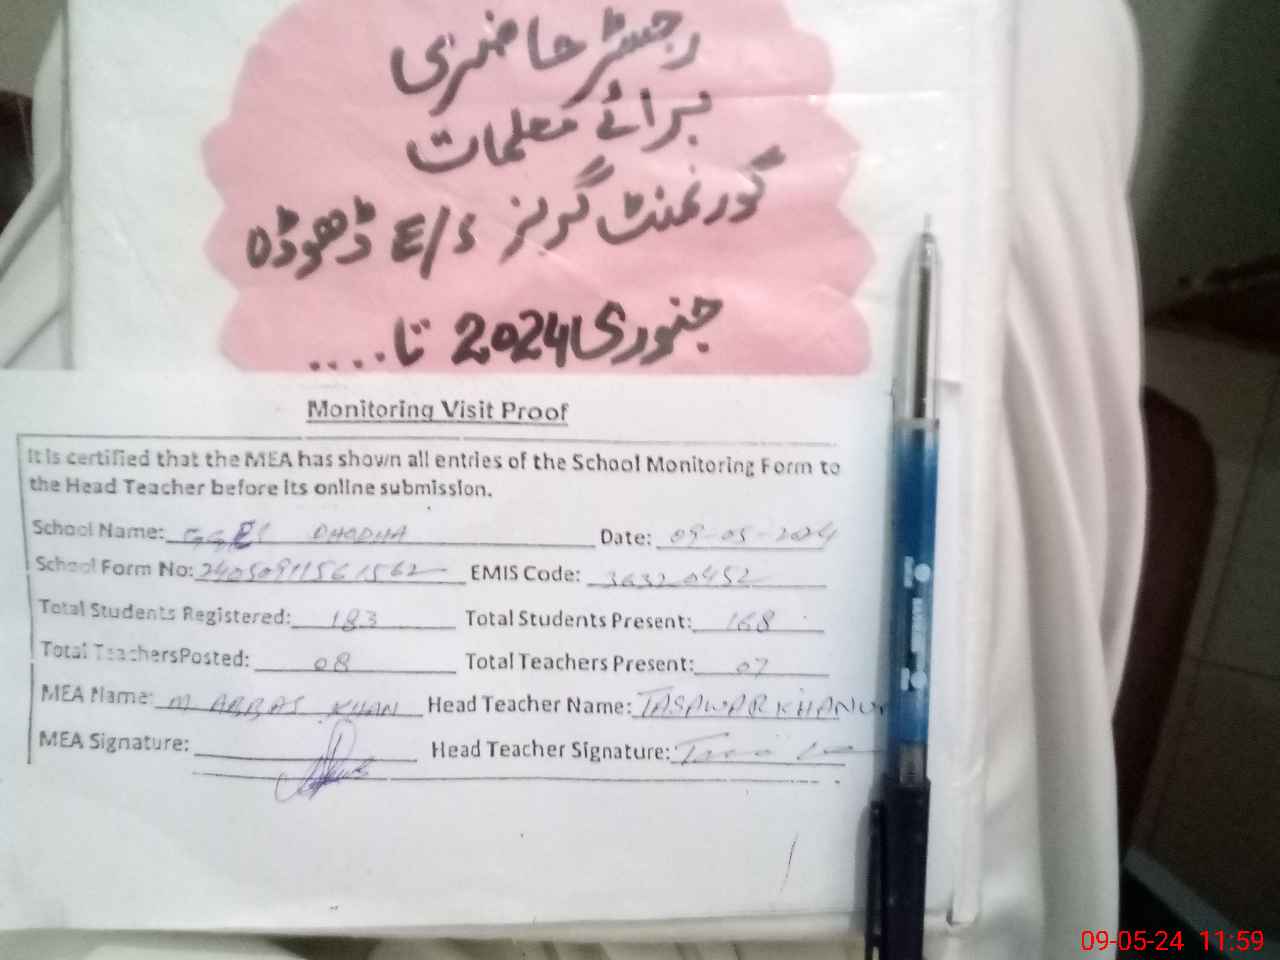 رجسٹر حاضری
برائے معلمات
گورنمنٹ گرلز E/S ڈھوڈہ
جنوری 2024 تا....
Monitoring Visit Proof
It is certified that the MEA has shown all entries of the School Monitoring Form to
the Head Teacher before its online submission.
School Name: GGES DHODHA Date: 09-05-2024
School Form No: 24050911561562 EMIS Code: 36320452
Total Students Registered: 183 Total Students Present: 168
Total TeachersPosted: 08 Total Teachers Present: 07
MEA Name: M ABBAS KHAN Head Teacher Name: TASAWAR KHANUM
MEA Signature: Head Teacher Signature:
09-05-24 11:59